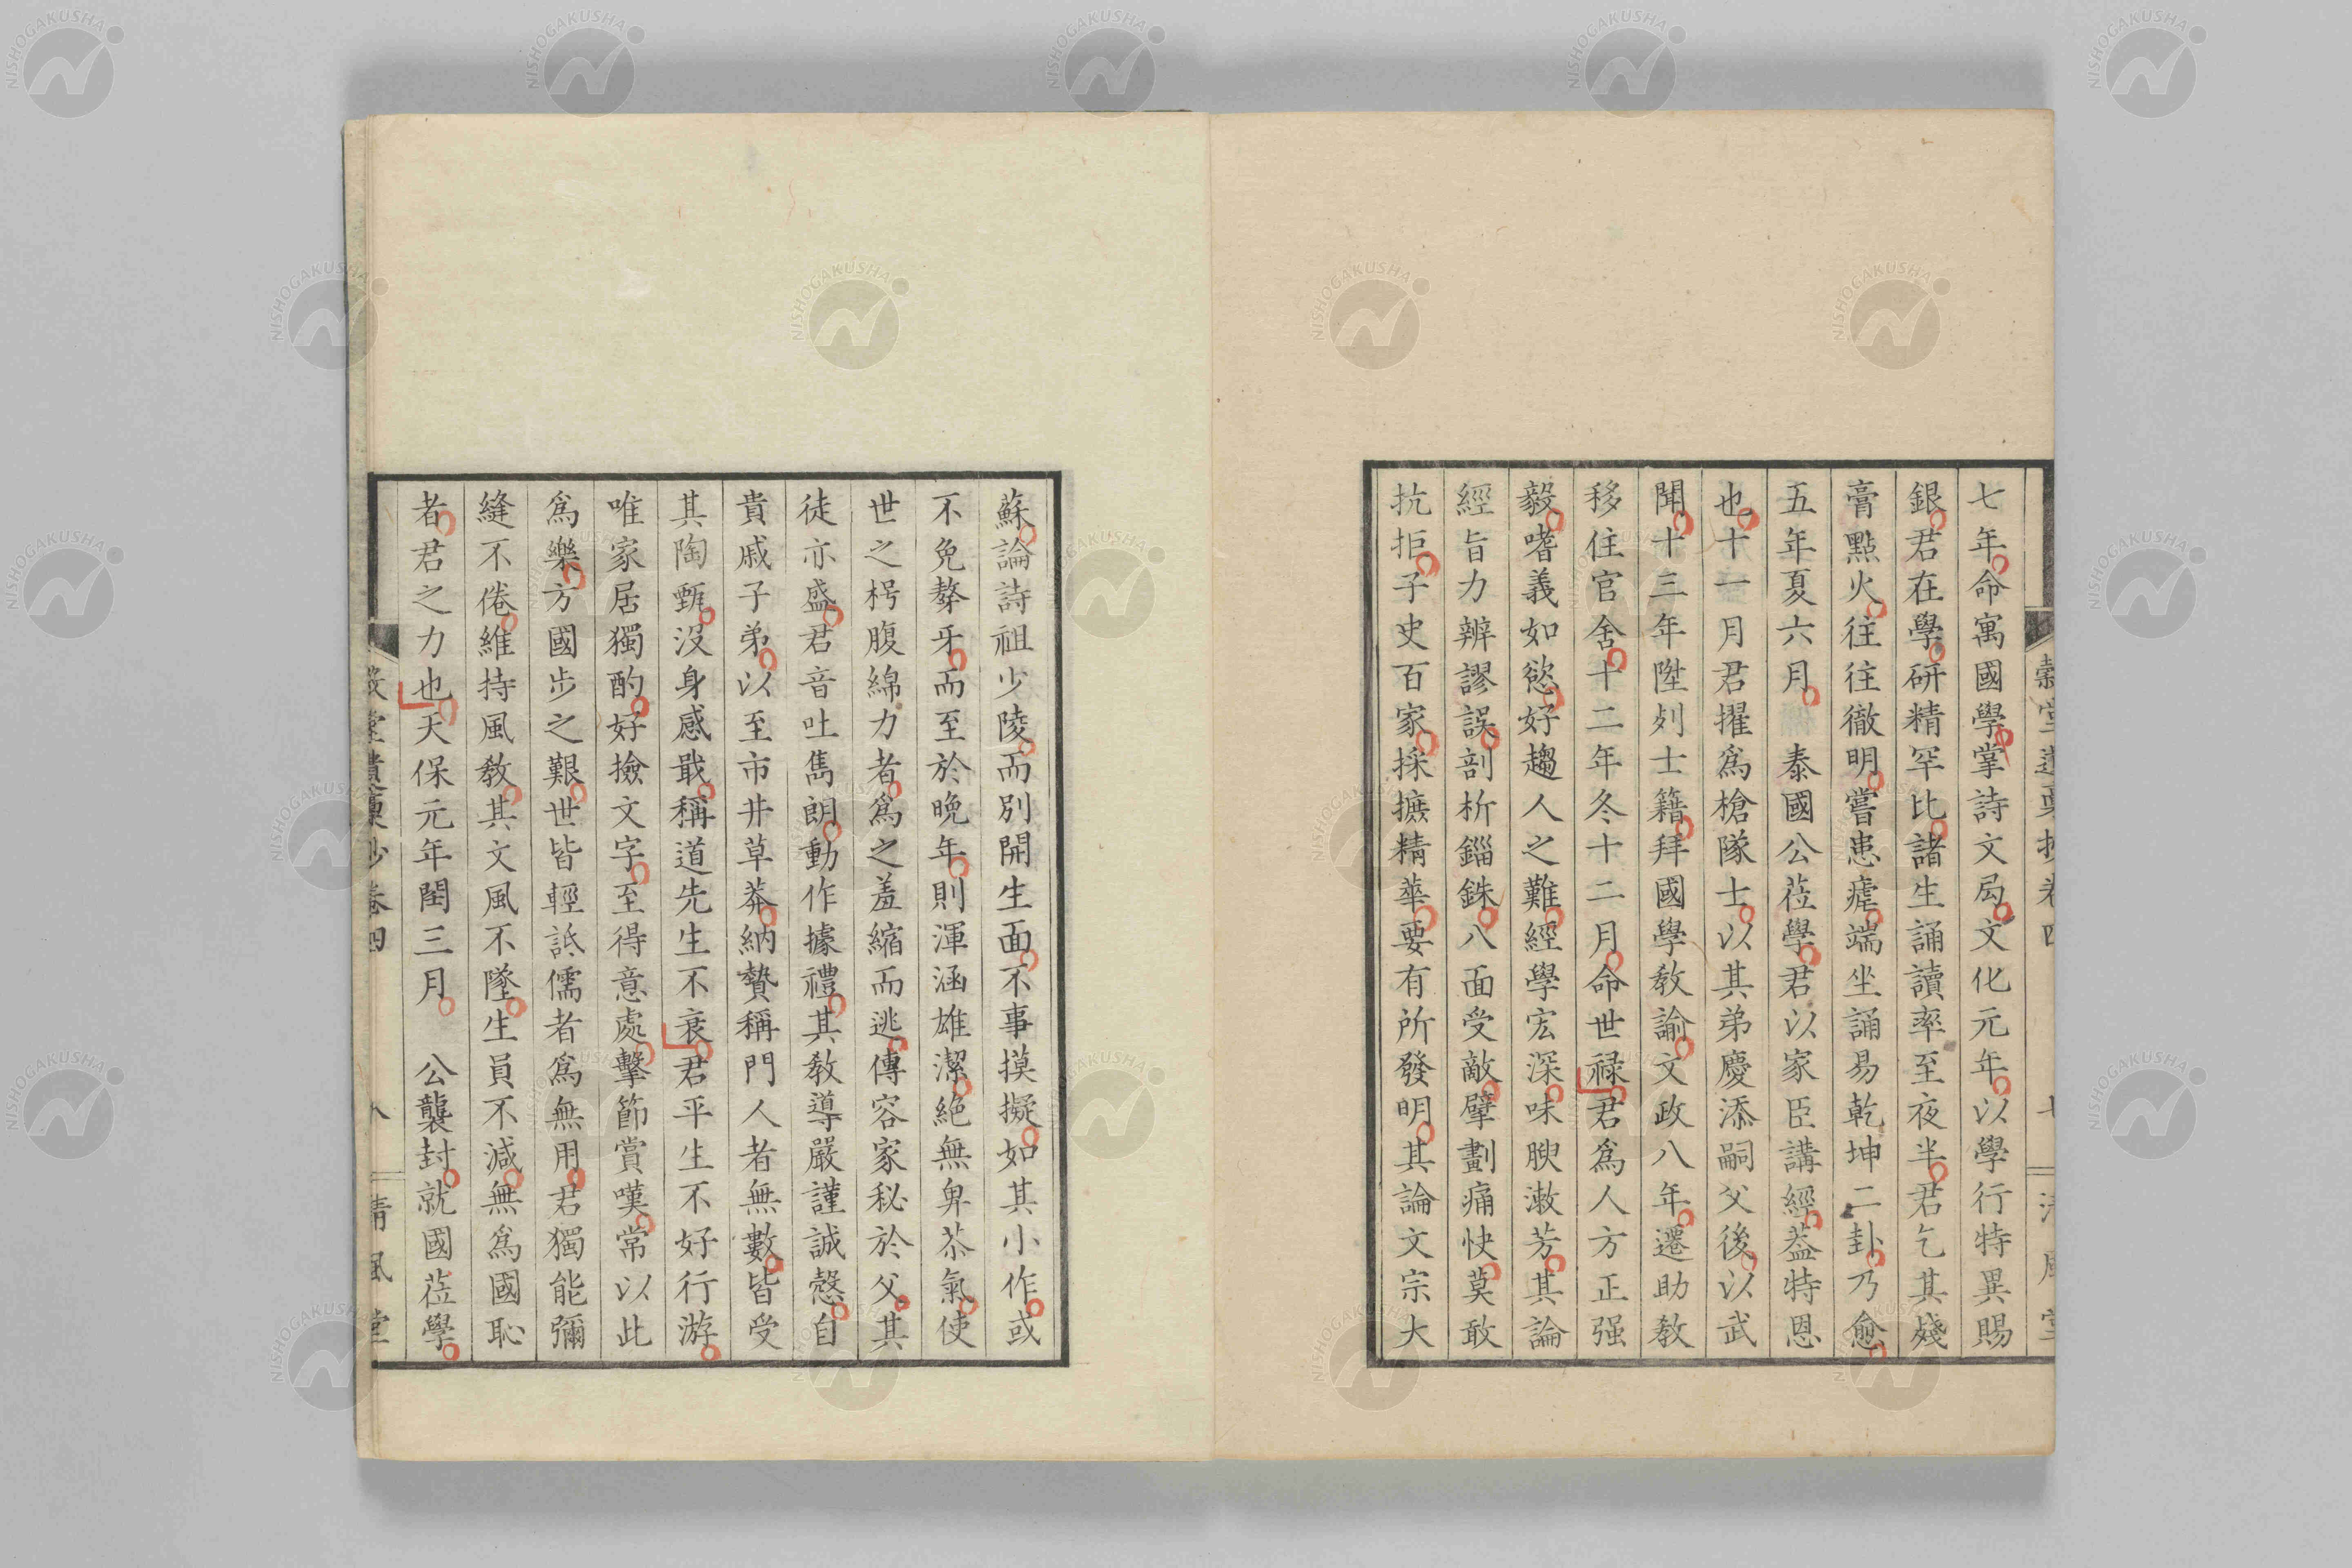 七年命寓國學掌詩文局文化元年以學行特異賜
銀君在學研精罕比諸生誦讀率至夜半君乞其殘
膏點火往往徹明嘗患瘧端坐誦易乾坤二卦乃愈
五年夏六月 泰國公莅學君以家臣講經葢特恩
也十一月君擢爲槍隊士以其弟慶添嗣父後以武
聞十三年陞列士籍拜國學教諭文政八年遷助教
移住官舍十二年冬十二月命世禄君爲人方正强
毅嗜義如慾好趨人之難經學宏深味腴漱芳其論
經旨力辨謬誤剖析錙銖八面受敵擘劃痛快莫敢
抗拒子史百家採摭精華要有所發明其論文宗大
蘇論詩祖少陵而別開生面不事摸擬如其小作或
不免聱牙而至於晩年則渾涵雄潔絶無卑苶氣使
世之枵腹綿力者爲之羞縮而逃傳容家秘於父其
徒亦盛君音吐雋朗動作據禮其教導嚴謹誠慤自
貴戚子弟以至市井草莽納贄稱門人者無數皆受
其陶甄沒身感戢稱道先生不衰君平生不好行游
唯家居獨酌好撿文字至得意處擊節賞嘆常以此
爲樂方國步之艱世皆輕詆儒者爲無用君獨能彌
縫不倦維持風教其文風不墜生員不減無爲國恥
者君之力也天保元年閏三月 公襲封就國莅學
卷四 八 清風堂